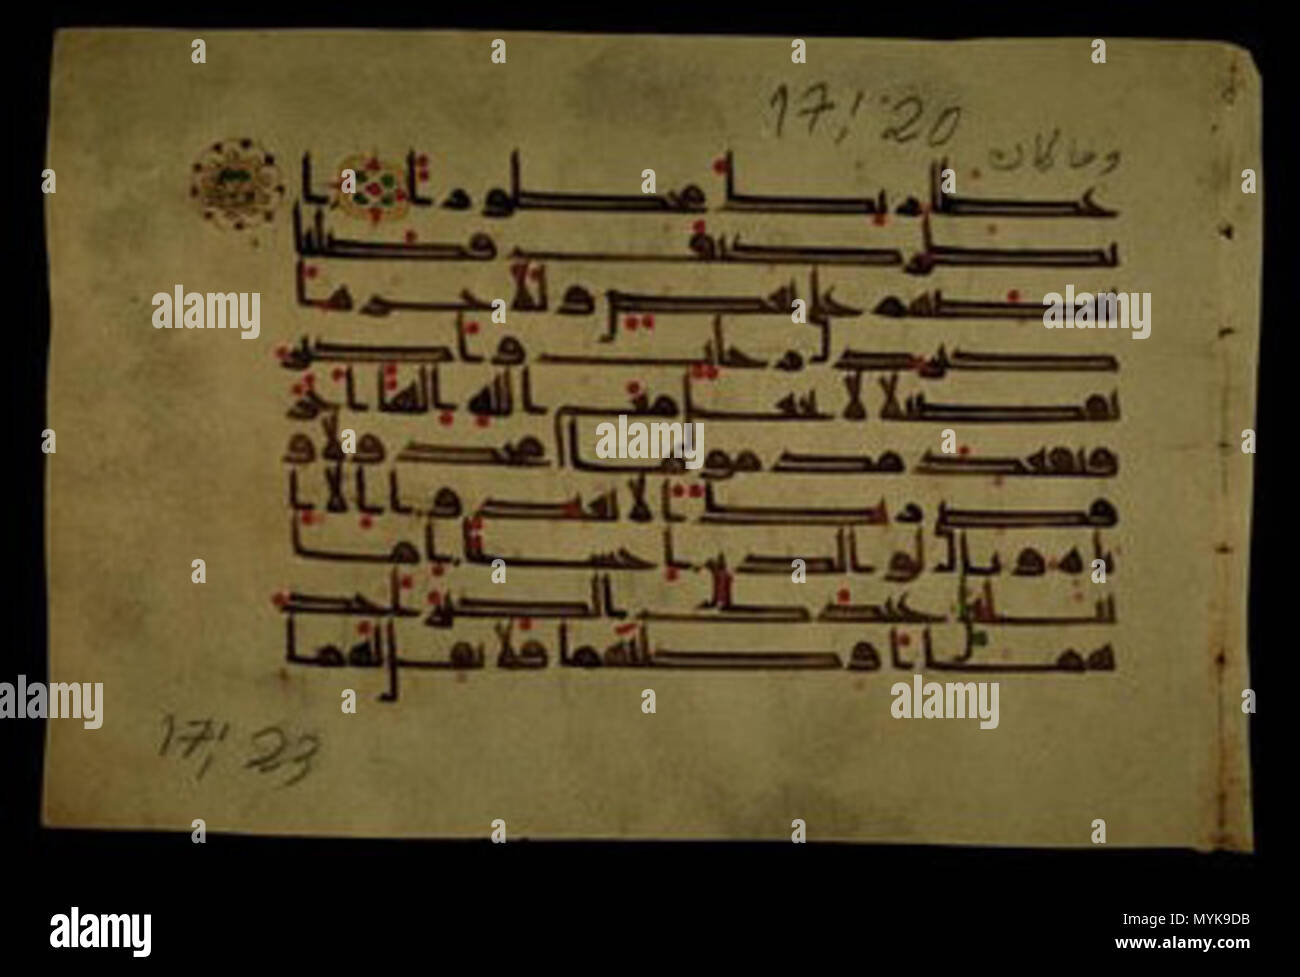 17,20
وما كان
عطا ربك محظورا ا
نظر كيف فضلنا
بعضهم على بعض وللاخرة ا
كبر درجت واكبر
تفضيلا لا تجعل مع الله الها اخر
فتقعد مذموما مخذولا و
قضى ربك الا تعبدوا الا ا
ياه وبالولدين احسنا اما
يبلغن عندك الكبر احد
هما او كلهما فلا تقل لهما
17,23
alamy
alamy
alamy
alamy
alamy
alamy
Image ID: MYK9DB
www.alamy.com